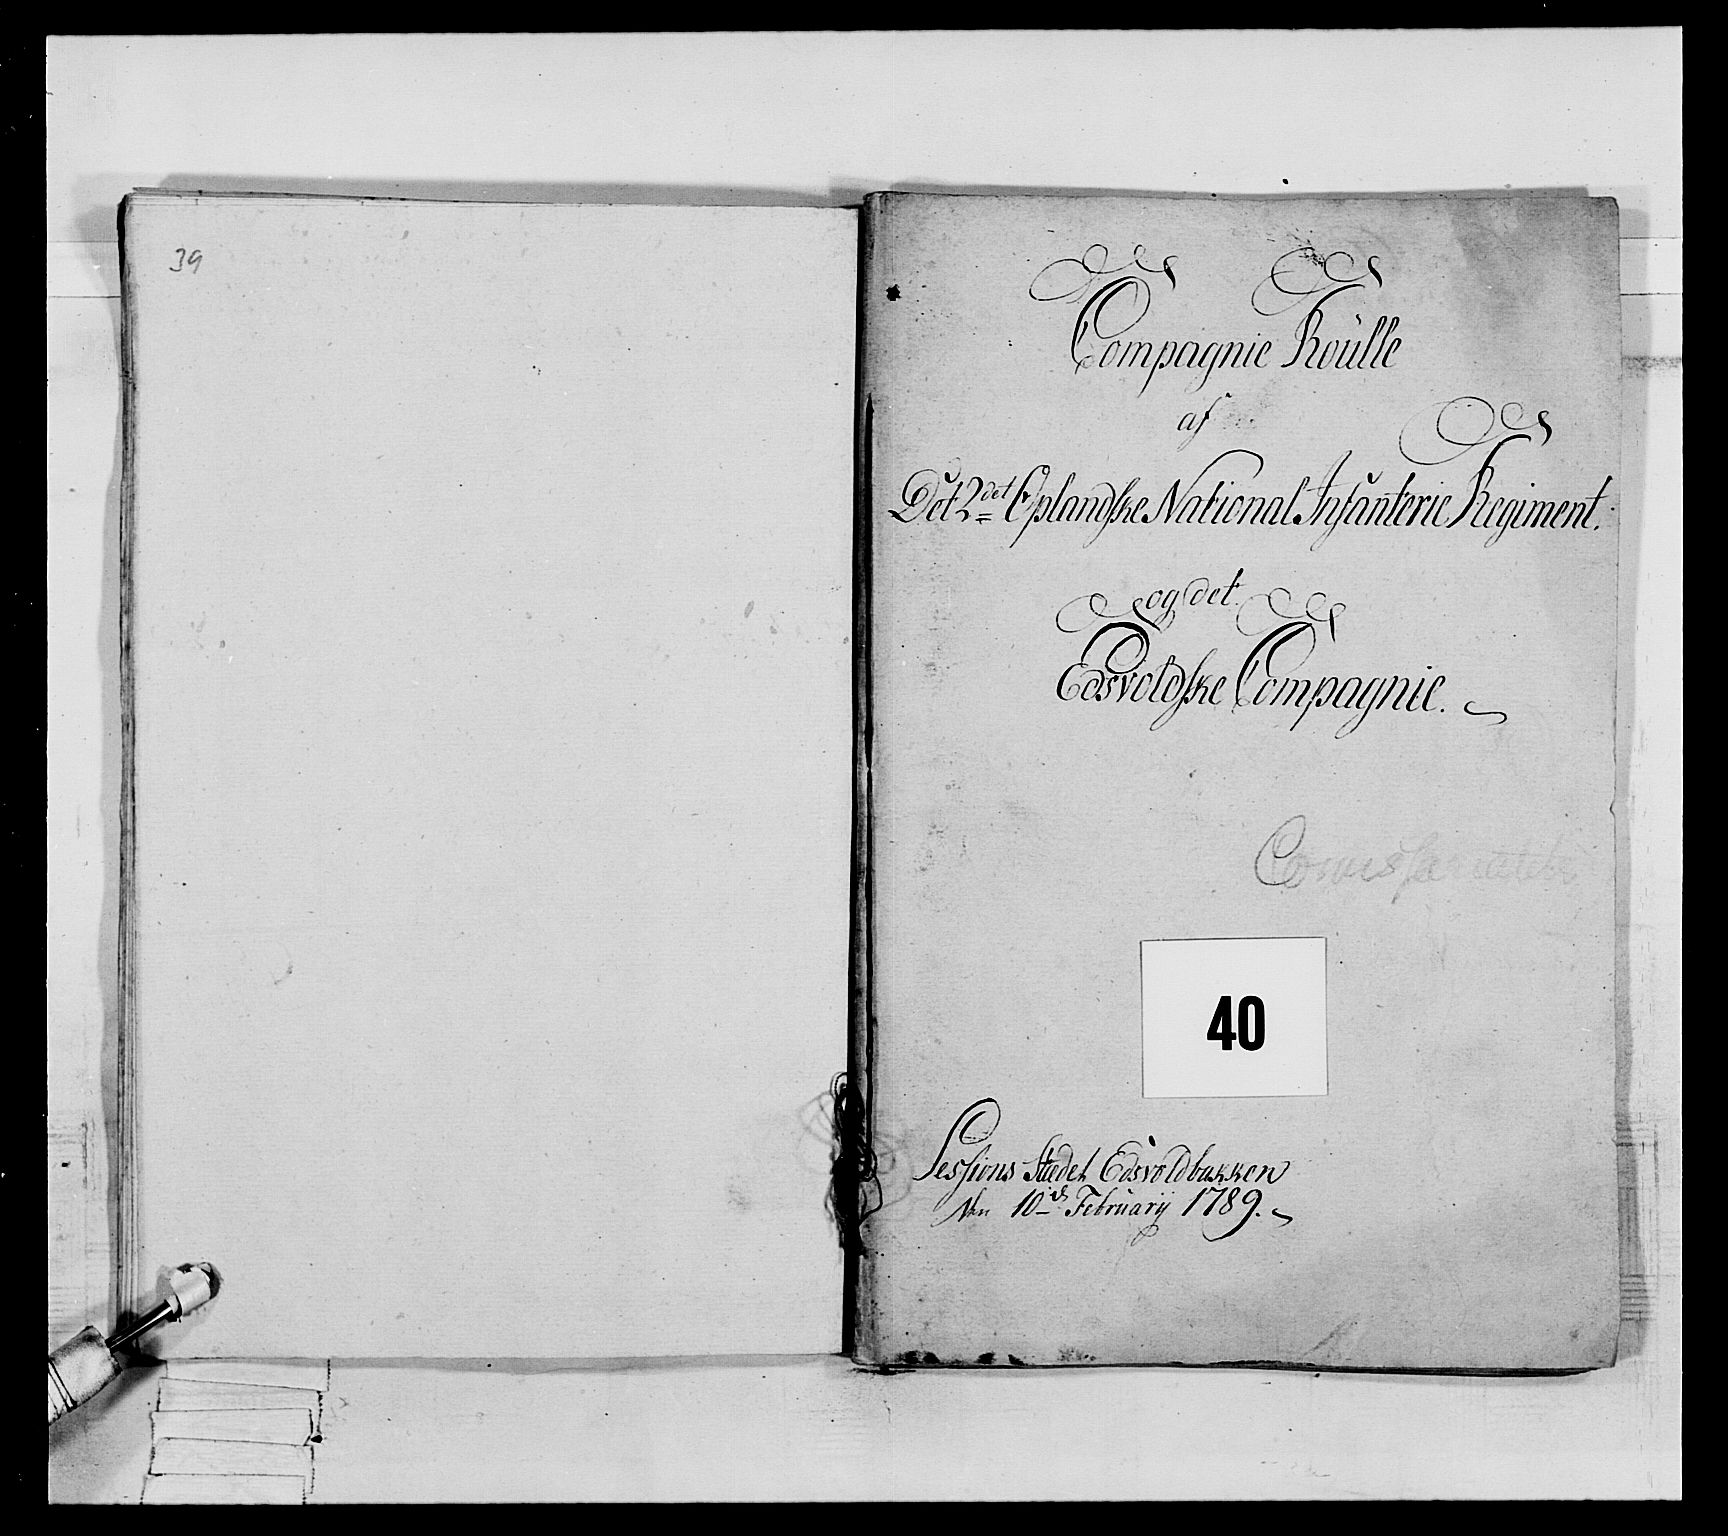 39
Compagnie Roülle
af
Det 2det Oplandske National Infanterie Regiment.
og det
Edsvoldske Compagnie.
40
Sessions Stædet Edsvoldbakken
den 10de Februarij 1789.